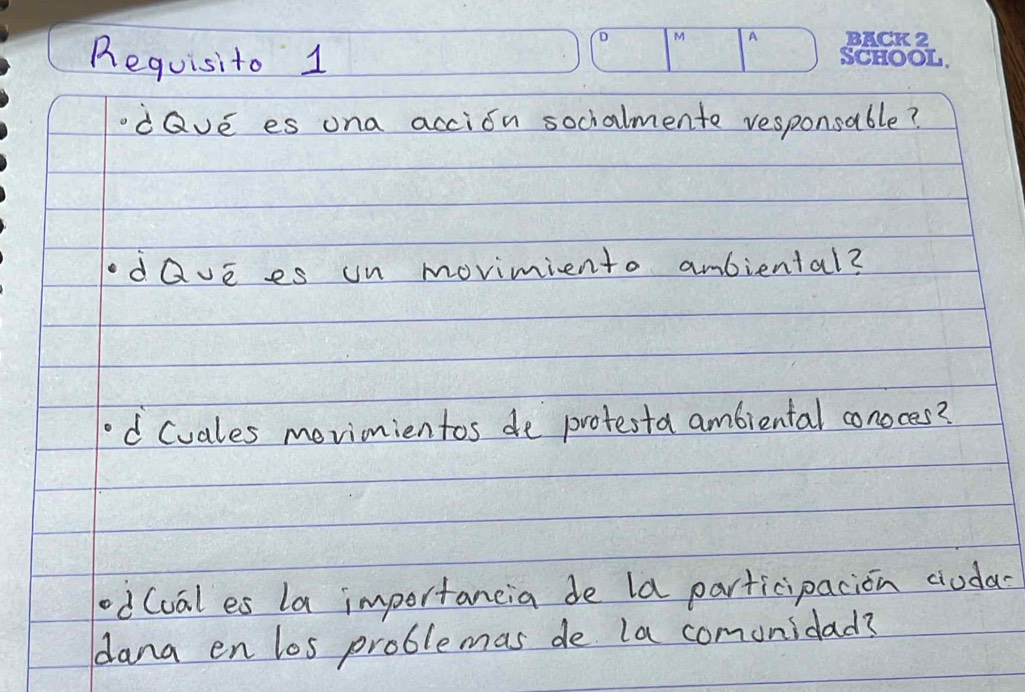 Requisito 1
D M A
BACK 2
SCHOOL.
•¿Qué es una acción socialmente responsable?
•¿Qué es un movimiento ambiental?
•¿Cuales movimientos de protesta ambiental conoces?
•¿Cuál es la importancia de la participación ciuda-
dana en los problemas de la comunidad?